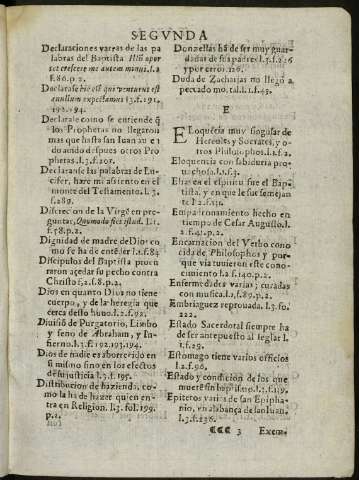 SEGVNDA
Declaraciones vareas de las pa
labras del Baptista Illũ opor
tet crescere me autem minui. l.2
f.86.p.2.
Declarase hic est qui venturus est
an illum expectamus l.3.f.191.
192.194.
Declarale como se entiende q̃
los Prophetas no llegaron
mas que hasta san Iuan aui
do auido despues otros Pro
phetas. l.3.f.207.
Declaranse las palabras de Lu-
cifer, hare mi asiento en el
monte del Testamento. l.3.
f.289.
Discrecion de la Virgẽ en pre-
guntar, Quomodo fiet istud. l.1.
f.58.p.2.
Dignidad de madre de Dios co
mo se ha de entẽder l.2.f.84
Discipulos del Baptista procu
raron açedar su pecho contra
Christo f.2.f.8.p.2.
Dios en quanto Dios no tiene
cuerpo, y de la heregia que
cerca desto huuo. l.2.f.92.
Diuisiõ de Purgatorio, Limbo
y seno de Abraham, y In-
fierno. l.3.f.192.193.194.
Dios de nadie es aborrecido en
si mismo sino en los efectos
de su justicia l.3.f.195.
Distribucion de hazienda, como
la ha de hazer quien en-
tra en Religion. l.3.fol.199.
p.2.
Donzellas hã de ser muy guar-
dadas de sus padres l.3.f.226
y por error. 126.
Duda de Zacharias no llegó a
pecado mortal. l.1.f.49.
E
ELoquẽcia muy singular de
Hercules y Socrates, y o-
tros Philosophos. l.1.f.2.
Eloquencia con sabiduria pro-
uechosa. l.1.f.3.
Elias en el espiritu fue el Bap-
tista, y en que le fue semejan
te l.2.f.131.
Empadronamiento hecho en
tiempo de Cesar Augusto. l.
2.f.41.p.2.
Encarnacion del Verbo cono
cida de Philosophos y por-
que via tuuieron este cono-
cimiento l.2.f.140.p.2.
Enfermedades varias; curadas
con musica. l.2.f.89.p.2.
Embriaguez reprouada. l.3.fo.
222.
Estado Sacerdotal siempre ha
de ser antepuesto al seglar l.
1.f.29.
Estomago tiene varios officios
l.2.f.96.
Estado y condicion de los que
muerẽ sin baptismo. l.2.f.119.
Epitetos varios de san Epipha-
nio, en alabança de san Iuan.
l.3.f.236.
CCC 3 Exem-